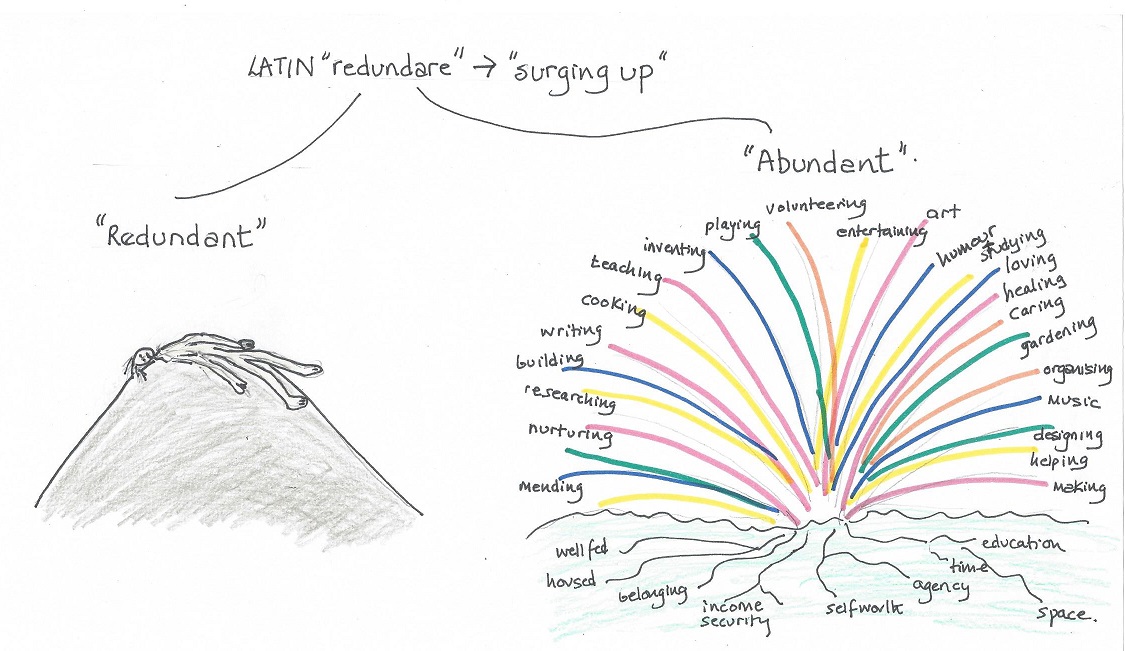 LATIN "redundare" → "surging up"
"Redundant"
"Abundent".
mending
nurturing
researching
building
writing
cooking
teaching
inventing
playing
volunteering
entertaining
art
humour
studying
loving
healing
caring
gardening
organising
music
designing
helping
making
well fed
housed
belonging
income
security
selfworth
agency
time
education
space.